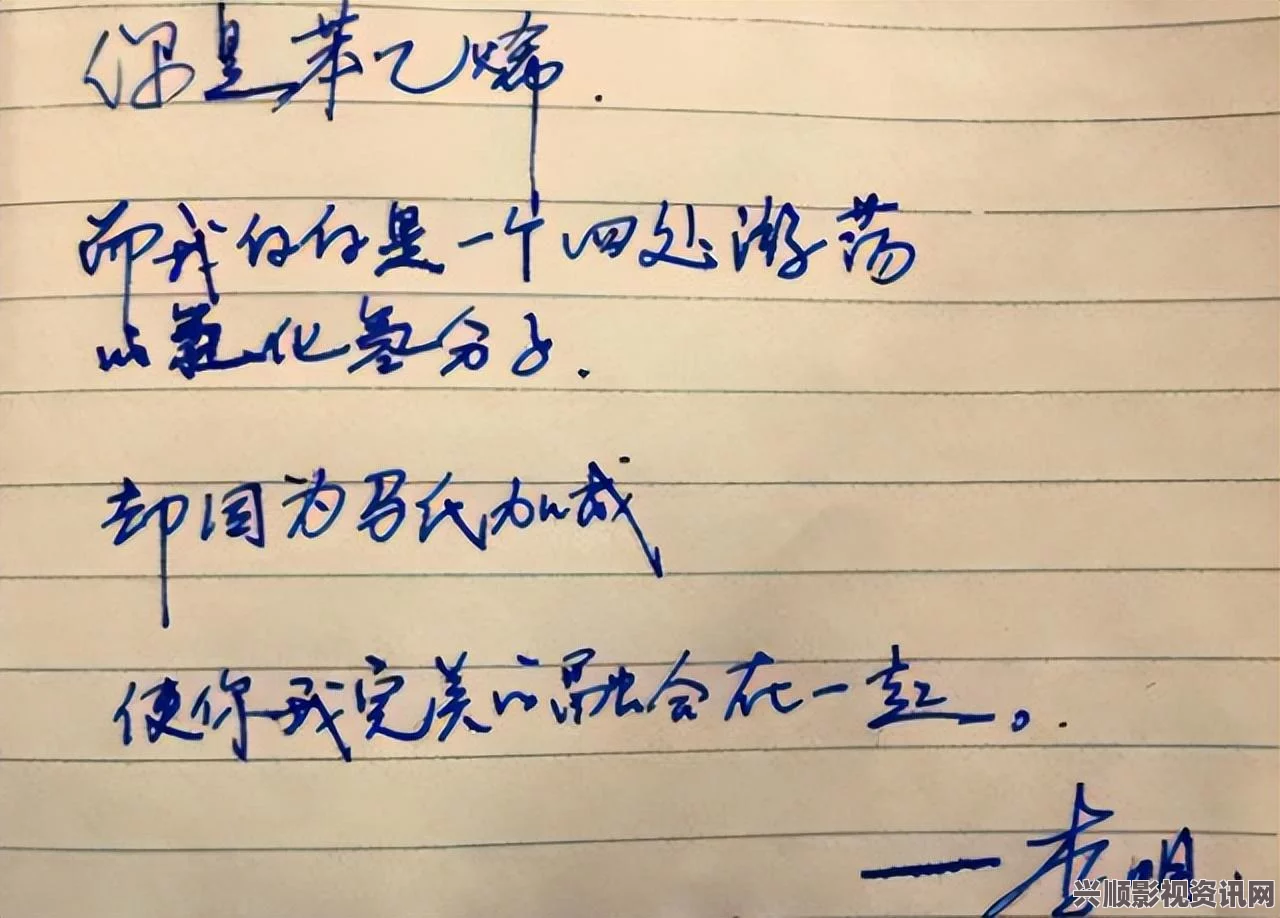 你是苯乙烯.
而我仅仅是一个四处游荡
的氯化氢分子.
却因为马氏加成
使你我完美的融合在一起。.
—李明.
兴顺影视资讯网